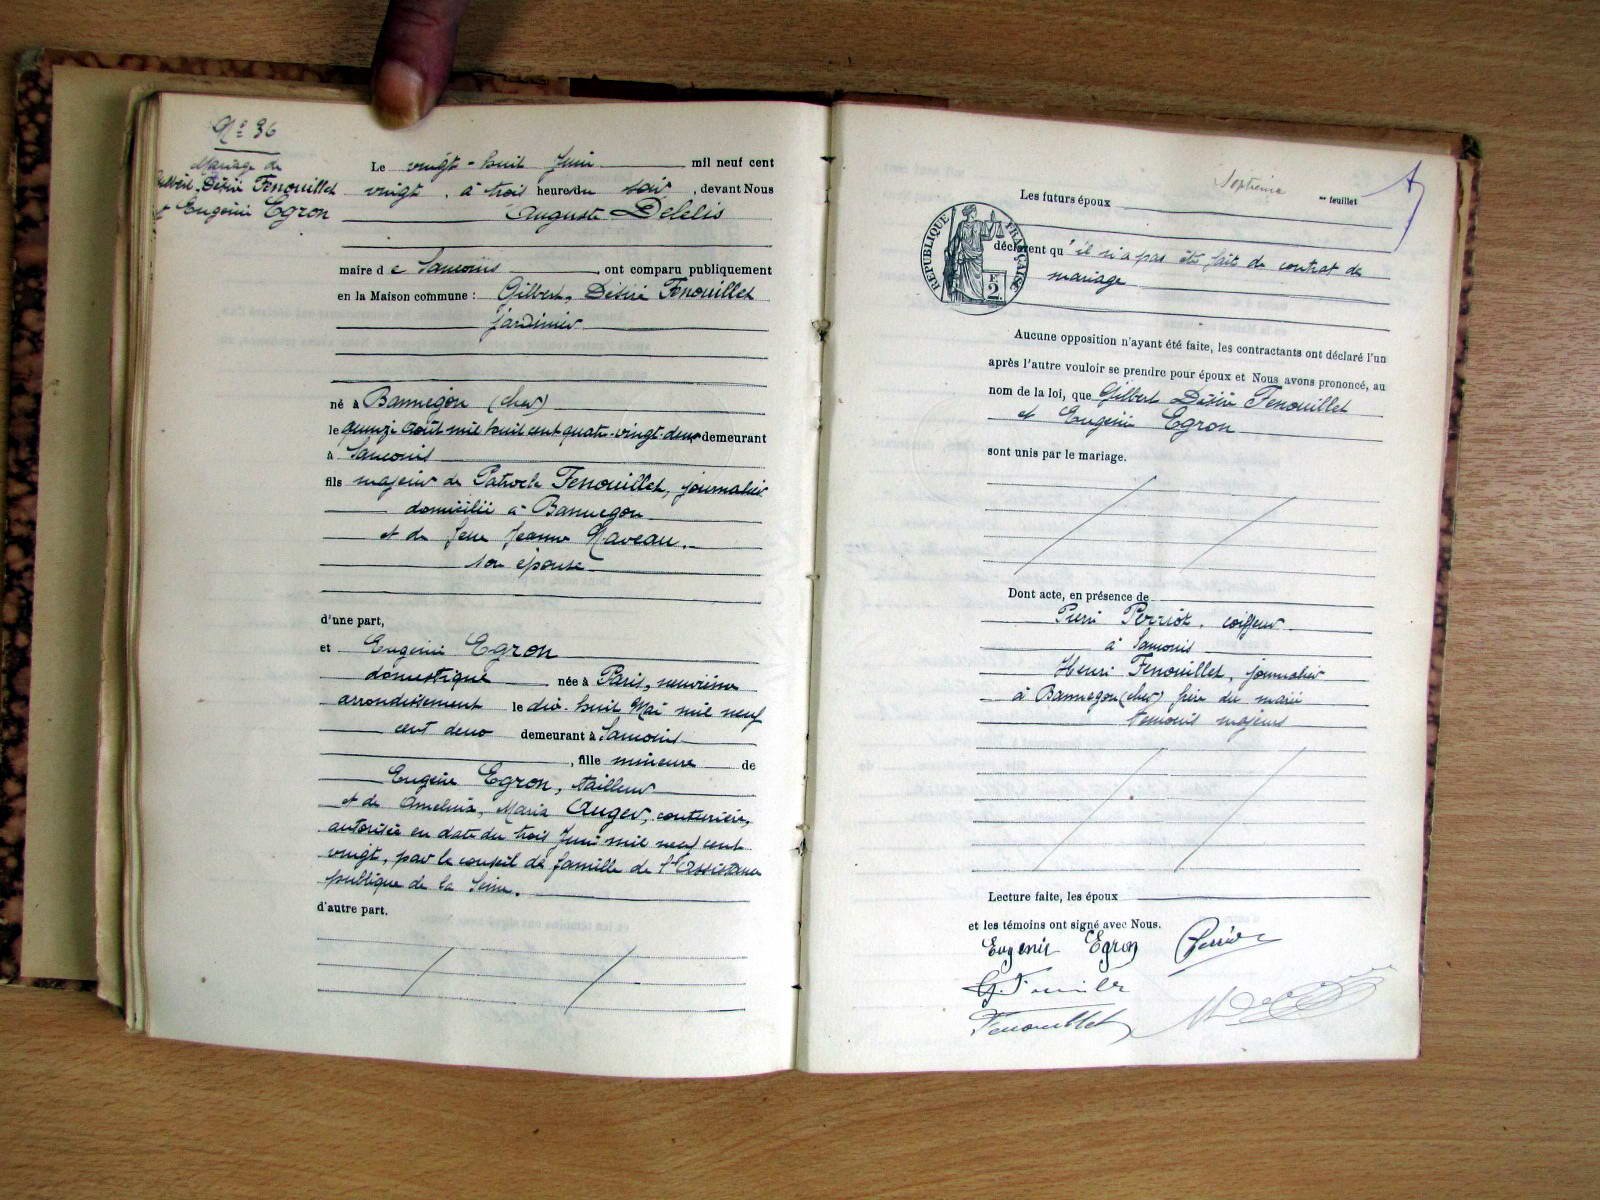 N° 36
Mariage de
Gilbert, Désiré Fenouillet
et Eugénie Egron
Le vingt-huit Juin mil neuf cent
vingt, à trois heures du soir, devant Nous
Auguste Delelis
maire de Sancoins, ont comparu publiquement
en la Maison commune : Gilbert, Désiré Fenouillet
jardinier
né à Bannegon (cher)
le quinze Août mil huit cent quatre-vingt-deux demeurant
à Sancoins
fils majeur de Patrocle Fenouillet, journalier
domicilié à Bannegon
et de feue Jeanne Naveau,
son épouse
d'une part,
et Eugénie Egron
domestique née à Paris, neuvième
arrondissement le dix-huit Mai mil neuf
cent deux demeurant à Sancoins
, fille mineure de
Eugène Egron, tailleur
et de Amelina, Maria Auger, couturière,
autorisée en date du trois Juin mil neuf cent
vingt, par le conseil de famille de l'Assistance
publique de la Seine.
d'autre part.
Septième feuillet
Les futurs époux
RÉPUBLIQUE FRANÇAISE
2
déclarent qu'il n'a pas été fait de contrat de
mariage
Aucune opposition n'ayant été faite, les contractants ont déclaré l'un
après l'autre vouloir se prendre pour époux et Nous avons prononcé, au
nom de la loi, que Gilbert Désiré Fenouillet
et Eugénie Egron
sont unis par le mariage.
Dont acte, en présence de
Pierre Perriot, coiffeur
à Sancoins
Henri Fenouillet, journalier
à Bannegon (cher) frère du marié
témoins majeurs
Lecture faite, les époux
et les témoins ont signé avec Nous.
Eugenie Egron
Fenouillet